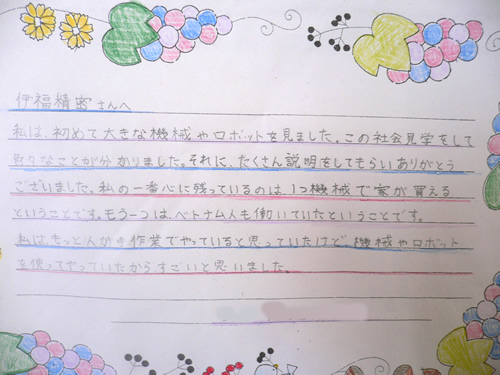 伊福精密さんへ
私は、初めて大きな機械やロボットを見ました。この社会見学をして
色々なことが分かりました。それに、たくさん説明をしてもらいありがとう
ございました。私の一番心に残っているのは、1つ機械で家が買える
ということです。もう一つは、ベトナム人も働いていたということです。
私はもっと人が手作業でやっていると思っていたけど、機械やロボット
を使ってやっていたからすごいと思いました。